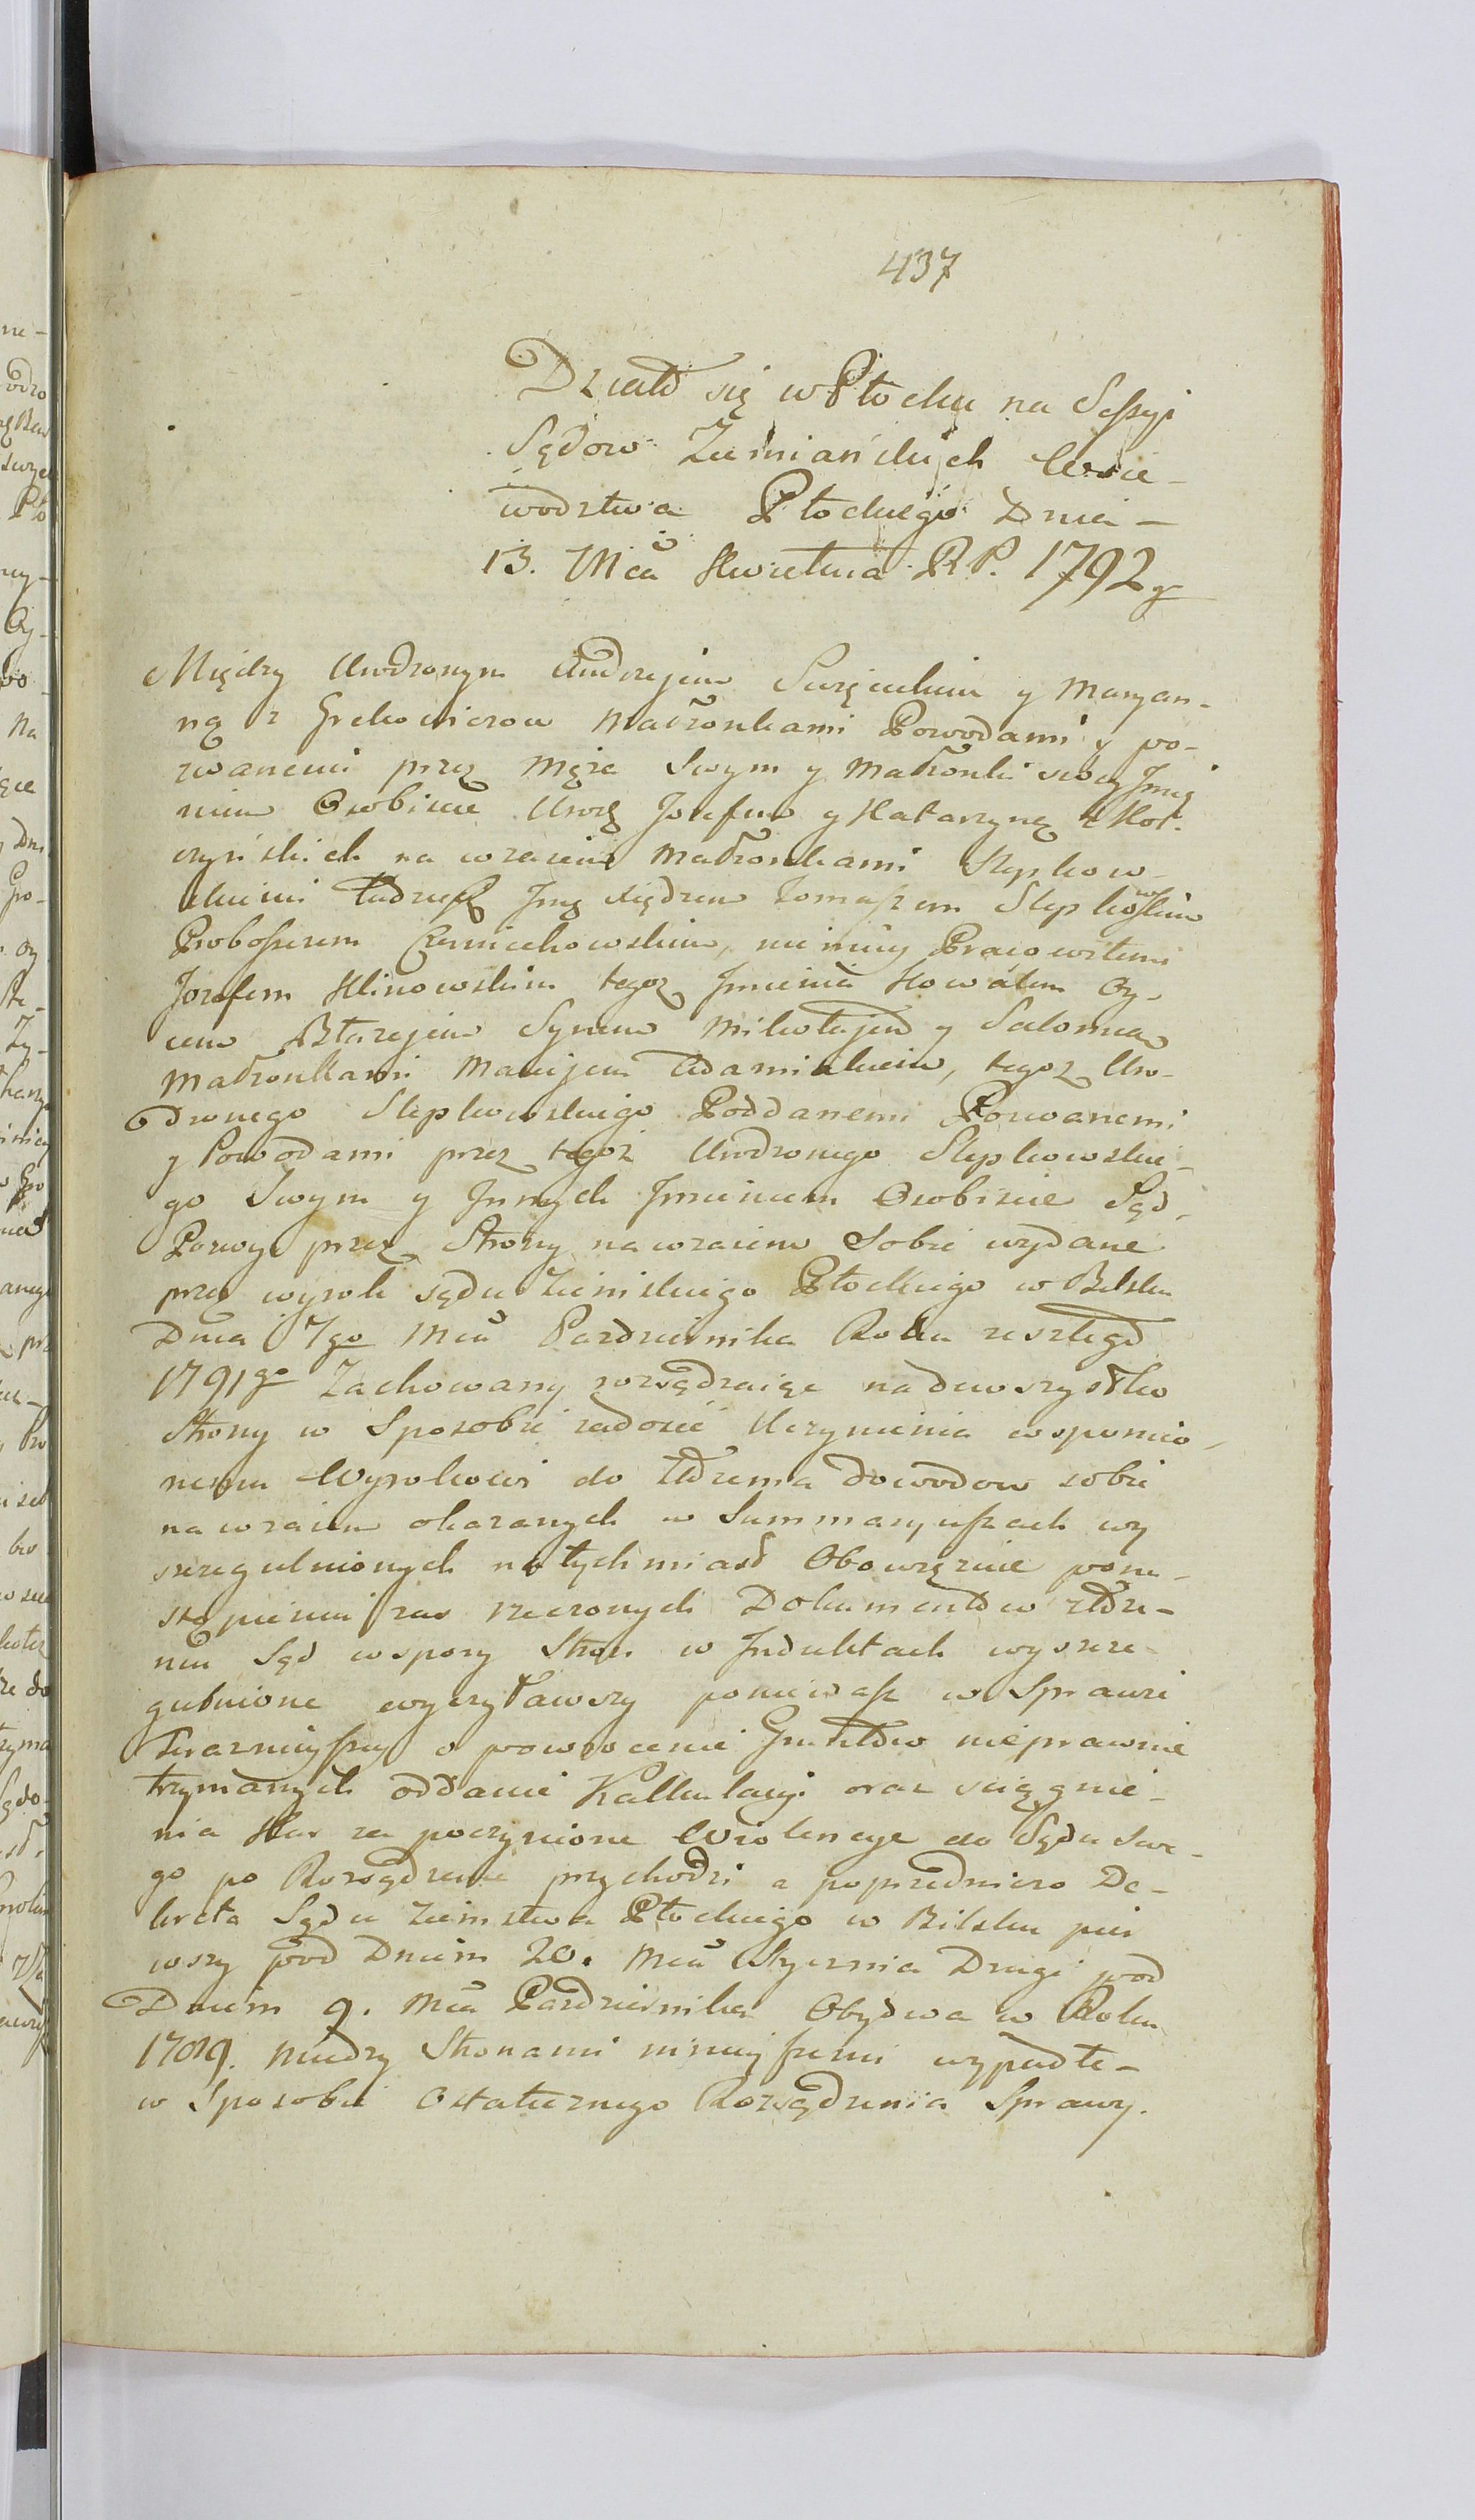 437
Działo się w Płocku na Sessyi
Sądow Ziemiańskich Woie-
wodztwa Płockiego Dnia -
13. Mca Kwietnia R.P. 1792 go
Między Urodzonym Andrzejem Święcickim y Maryan-
ną z Małżonkami Powodami y po-
zwanemi przez Męża Swym y Małżonki swey Jmie
niem Osobiscie Urodz Jozefem y Katarzyną z Kot-
czyńskich na wzaiem Małżonkami Slepkow-
skiemi tudzież Jmę Xiędzem Tomaszem Slepkowskim
Proboszczem Czerniechowskim, nie mniey Pracowitemi
Jozefem Klinowskim tegoż Jmienia Kowalem Oy-
cem Błażejem Synem Mikołajem y Salomeą
Małżonkami Maciejem Adamiakiem, tegoż Uro-
dzonego Slepkowskiego Poddanemi Pozwanemi
y Powodami przez tegoż Urodzonego Slepkowskie-
go Swym y Jnnych Jmieniem Osobiscie Sąd,
Pozwy przez Strony nawzaiem Sobie wydane
przez wyrok sądu Ziemskiego Płockiego w Bielsku
Dnia 7go Mca Pazdziernika Roku zeszłego
1791go Zachowany rozsądzaiąc nadewszystko
Strony w Sposobie zadosić Uczynienia wspomnio-
nemu Wyrokowi do złożenia dowodow sobie
nawzaiem okazanych w Summaryuszach wy
szczegulnionych natychmiast Obowiązuie po na-
stąpieniu zas rzeczonych Dokumentow złoże-
niu Sąd wspory Stron w Induktach wyszcze-
gulnione wyczytawszy poniewasz w Sprawie
Terazniejszey o powrocenie Gruntow nieprawnie
trzymanych oddanie Kalkulacyi oraz sciągnie-
nia Kar za poczynione Wiolencye do Sądu swe-
go po Rozsądzenie przychodzi a poprzedniczo De-
kreta Sądu Ziemstwa Płockiego w Bielsku pier
wszy pod Dniem 20. Mca Stycznia Drugi pod
Dniem 9. Mca Pazdziernika Obydwa w Roku
1789. miedzy Stronami ninieyszemi wypadłe -
w Sposobie Ostatecznego Rozsądzenia Sprawy.